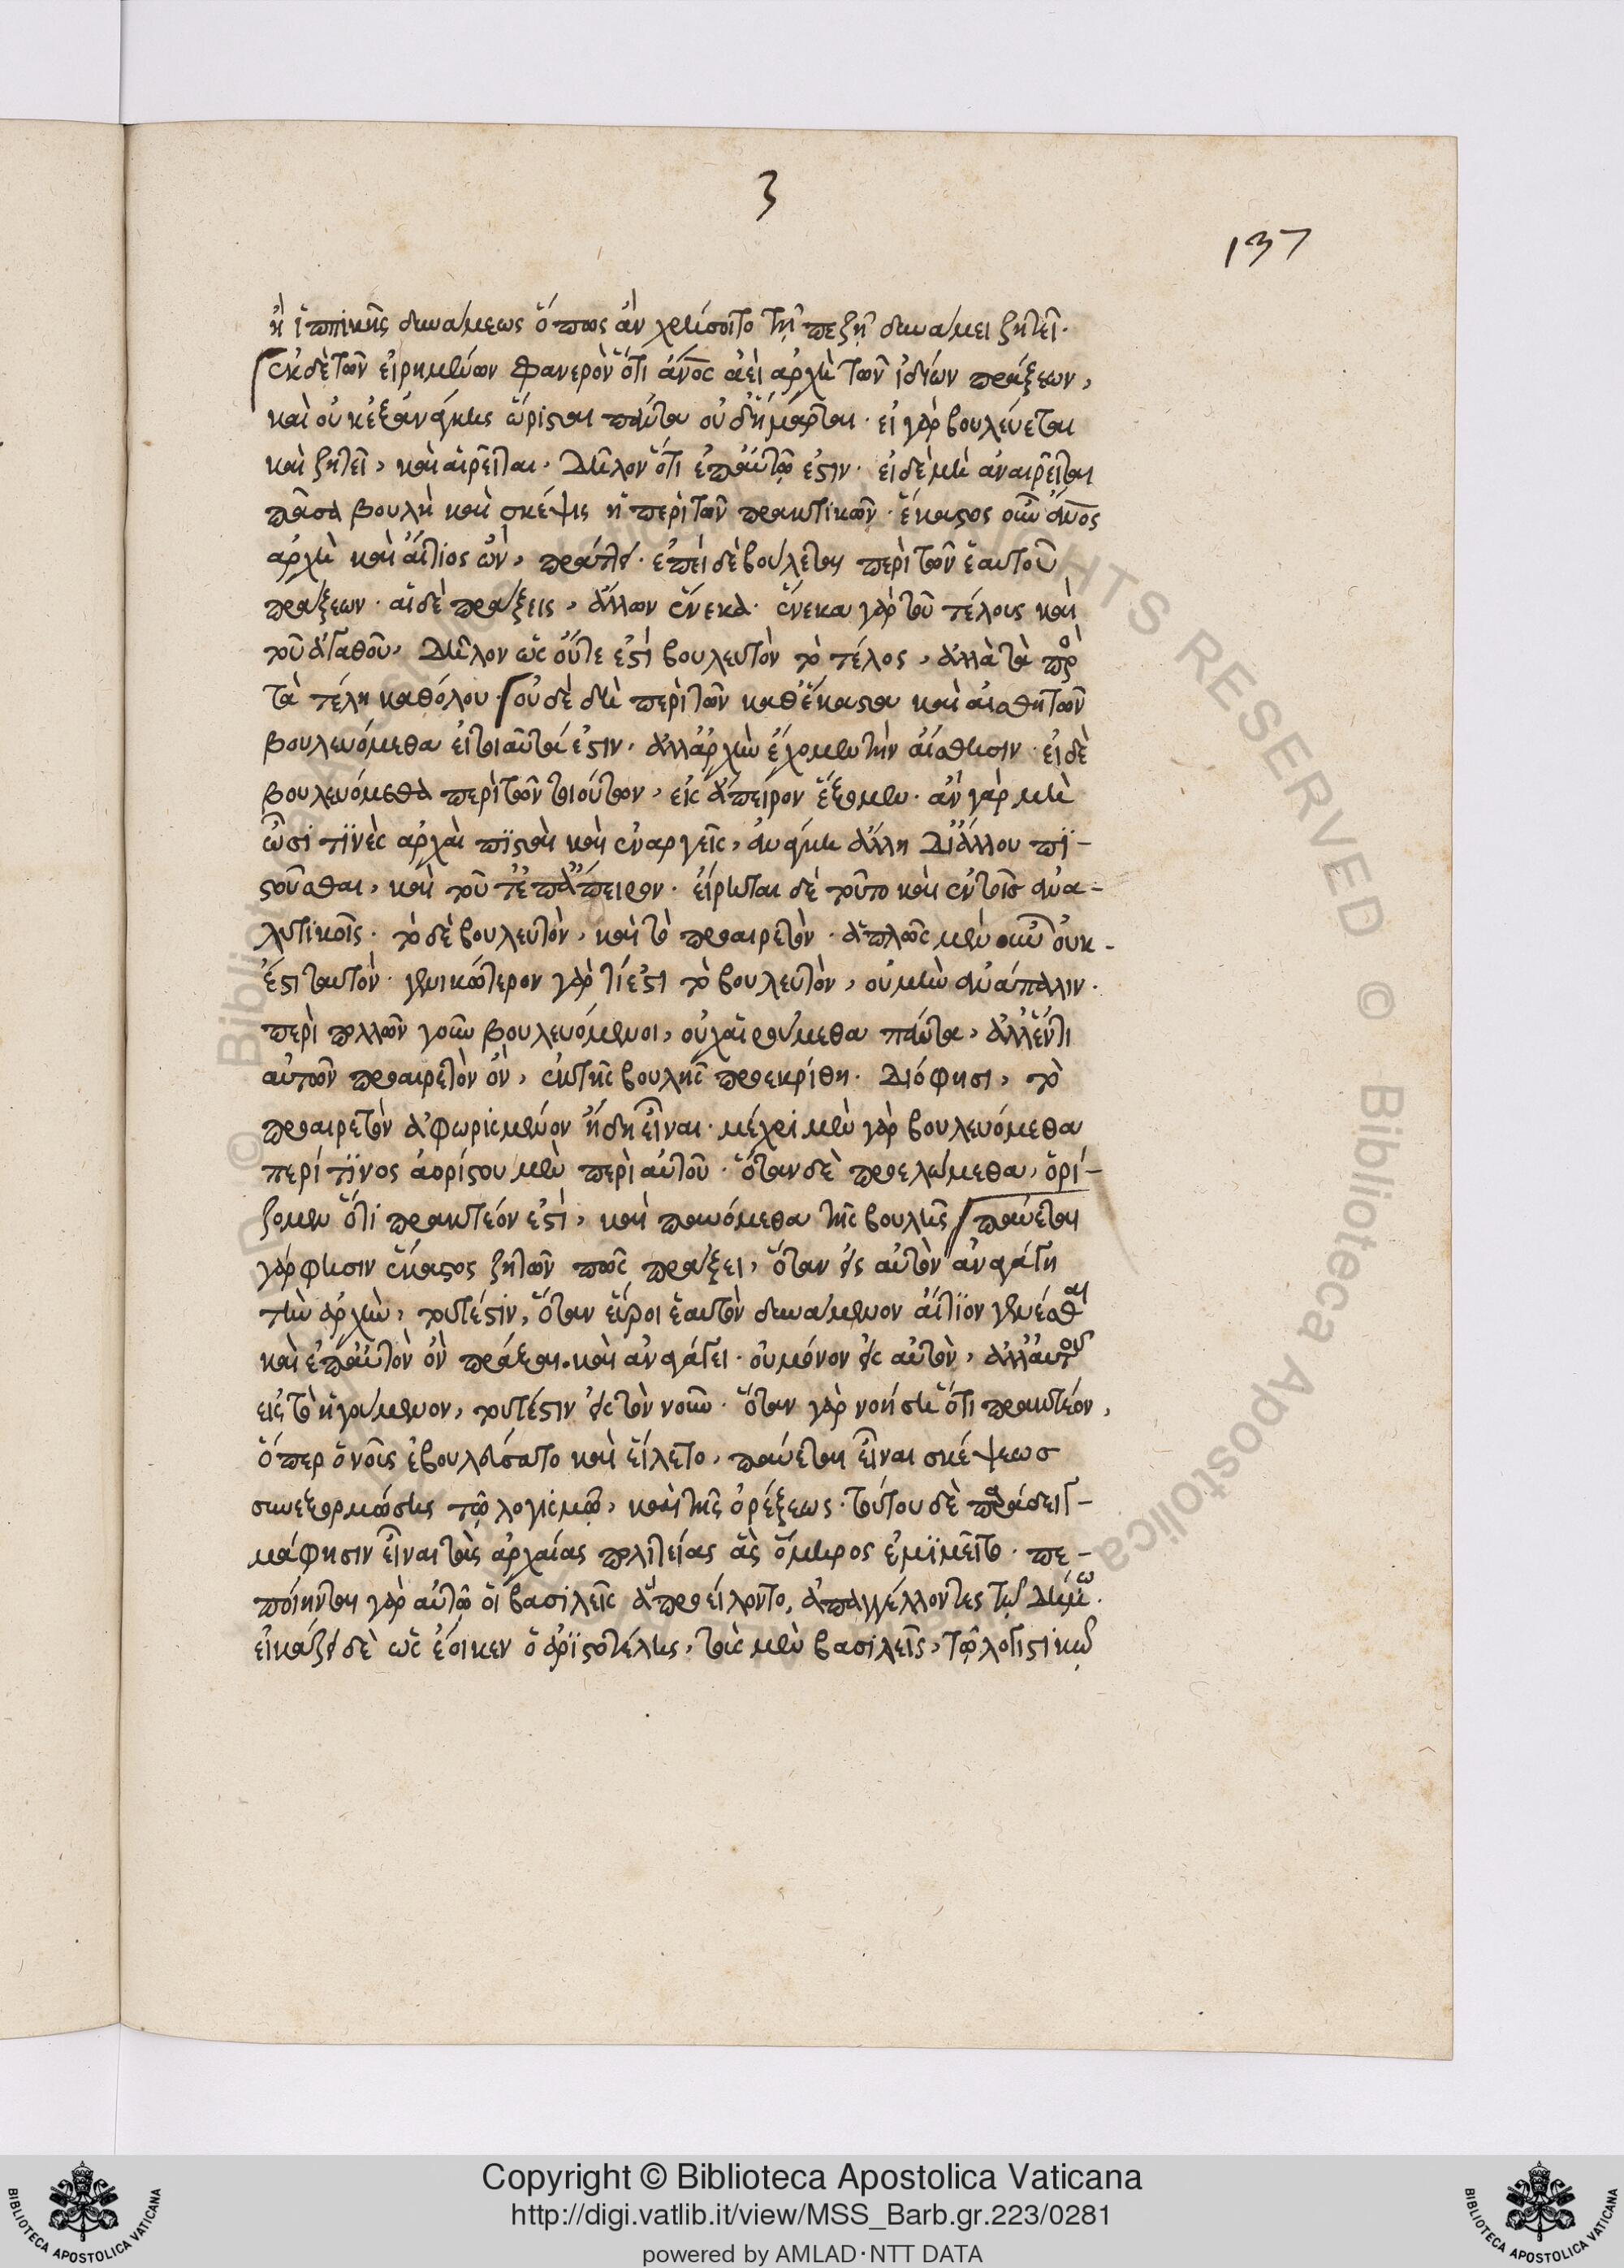 3
137
ἢ ἱππικῆς δυνάμεως ὅπως ἂν χρήσοιτο τῇ πεζῇ δυνάμει ζητεῖ.
ἐκ δὲ τῶν εἰρημένων φανερὸν ὅτι ἄνος ἀεὶ ἀρχὴ τῶν ἰδίων πράξεων,
καὶ οὐκ ἐξ ἀνάγκης ὥρισται πάντα οὐδ' ἥμαρται. εἰ γὰρ βουλεύεται
καὶ ζητεῖ, καὶ αἱρεῖται, δῆλον ὅτι ἐπ' αὐτῷ ἐστιν. εἰ δὲ μὴ ἀναιρεῖται
πᾶσα βουλὴ καὶ σκέψις ἡ περὶ τῶν πρακτικῶν. ἕκαστος οὖν ἄνος
ἀρχὴ καὶ αἴτιος ὢν, πράττει. ἐπεὶ δὲ βούλεται περὶ τῶν ἑαυτοῦ
πράξεων. αἱ δὲ πράξεις, ἄλλων ἕνεκα. ἕνεκα γὰρ τοῦ τέλους καὶ
τοῦ ἀγαθοῦ, δῆλον ὡς οὔτε ἐστὶ βουλευτὸν τὸ τέλος, ἀλλὰ τὰ πρὸς
τὰ τέλη καθόλου. οὐδὲ δὴ περὶ τῶν καθ' ἕκαστα καὶ αἰσθητῶν
βουλευόμεθα εἰ τοιαῦτά ἐστιν, ἀλλ' ἀρχὴν ἔχομεν τὴν αἴσθησιν. εἰ δὲ
βουλευόμεθα περὶ τῶν τοιούτων, εἰς ἄπειρον ἥξομεν. ἂν γὰρ μὴ
ὦσί τινες ἀρχαὶ πισταὶ καὶ ἐναργεῖς, ἀνάγκη ἄλλη δι' ἄλλου πι-
στοῦσθαι, καὶ τοῦτ' ἐπ' ἄπειρον. εἴρηται δὲ τοῦτο καὶ ἐν τοῖς ἀνα-
λυτικοῖς. τὸ δὲ βουλευτὸν, καὶ τὸ προαιρετὸν. ἁπλῶς μὲν οὖν οὐκ-
ἔστι ταυτὸν. γενικώτερον γὰρ τί ἐστι τὸ βουλευτὸν, οὐ μὴν ἀνάπαλιν.
περὶ πολλῶν γοῦν βουλευόμενοι, οὐχ αἱρούμεθα πάντα, ἀλλ' ἕν τι
αὐτῶν προαιρετὸν ὂν, ἐκ τῆς βουλῆς προεκρίθη. διό φησι, τὸ
προαιρετὸν ἀφωρισμένον ἤδη εἶναι. μέχρι μὲν γὰρ βουλευόμεθα
περί τινος ἀορίστου μὲν περὶ αὐτοῦ. ὅταν δὲ προελώμεθα, ὁρί-
ζομεν ὅτι πρακτέον ἐστὶ, καὶ παυόμεθα τῆς βουλῆς. παύεται
γάρ φησιν ἕκαστος ζητῶν πῶς πράξει, ὅταν εἰς αὐτὸν ἀναγάγῃ
τὴν ἀρχὴν, τουτέστιν, ὅταν εὕροι ἑαυτὸν δυνάμενον αἴτιον γενέσθαι
καὶ ἐπ' αὐτὸν ὂν πράξαι. καὶ ἀναγάγει. οὐ μόνον εἰς αὐτὸν, ἀλλ' αὐτοῦ
εἰς τὸ ἡγούμενον, τουτέστιν εἰς τὸν νοῦν. ὅταν γὰρ νοήσῃ ὅτι πρακτέον,
ὅπερ ὁ νοῦς ἐβουλεύσατο καὶ εἵλετο, παύεται εἶναι σκέψεως
συνεξορμώσης τῷ λογισμῷ, καὶ τῆς ὀρέξεως. τούτου δὲ παράδειγ-
μά φησιν εἶναι τὰς ἀρχαίας πολιτείας ἃς ὅμηρος ἐμιμεῖτο. πε-
ποίηνται γὰρ αὐτῷ οἱ βασιλεῖς ἃ προείλοντο, ἀπαγγέλλοντες τῷ δήμῳ.
εἰκάζει δὲ ὡς ἔοικεν ὁ ἀριστοτέλης, τοὺς μὲν βασιλεῖς, τῷ λογιστικῷ
Copyright © Biblioteca Apostolica Vaticana
http://digi.vatlib.it/view/MSS_Barb.gr.223/0281
powered by AMLAD·NTT DATA